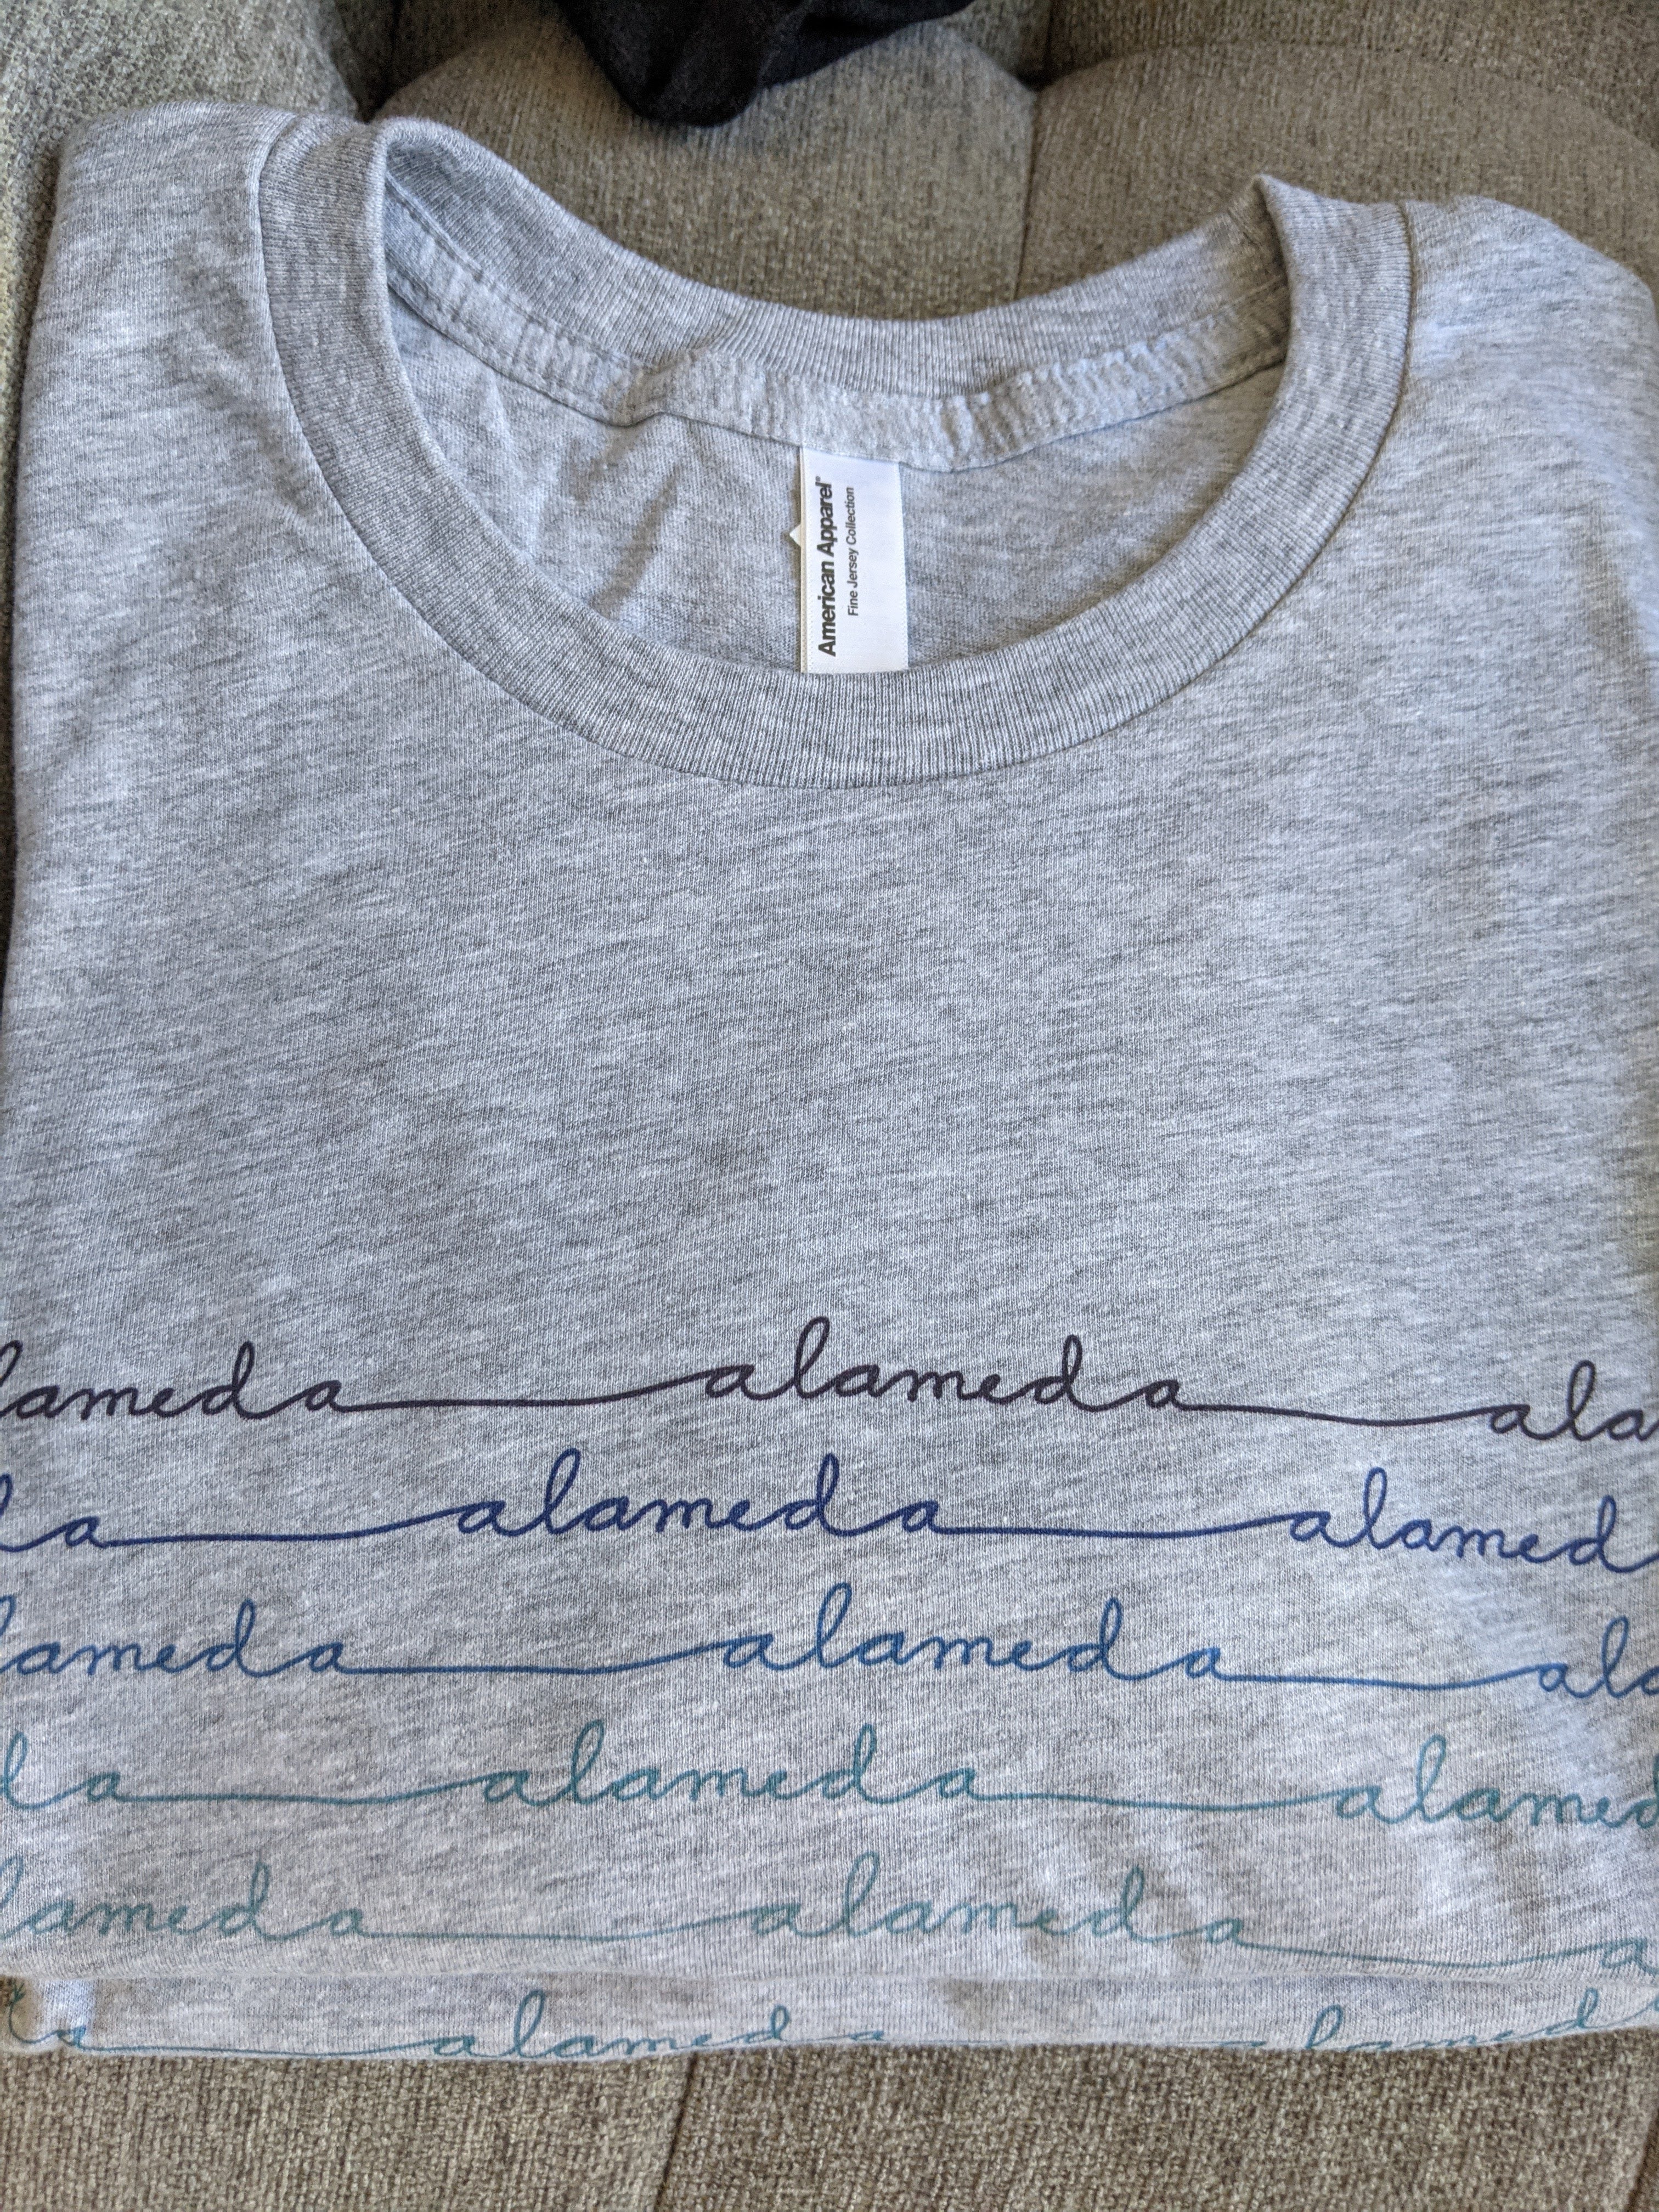 American Apparel®
Fine Jersey Collection
lameda alameda ala
da alameda alamed
lameda alameda ala
da alameda alamed
lameda alameda a
da alameda alameda